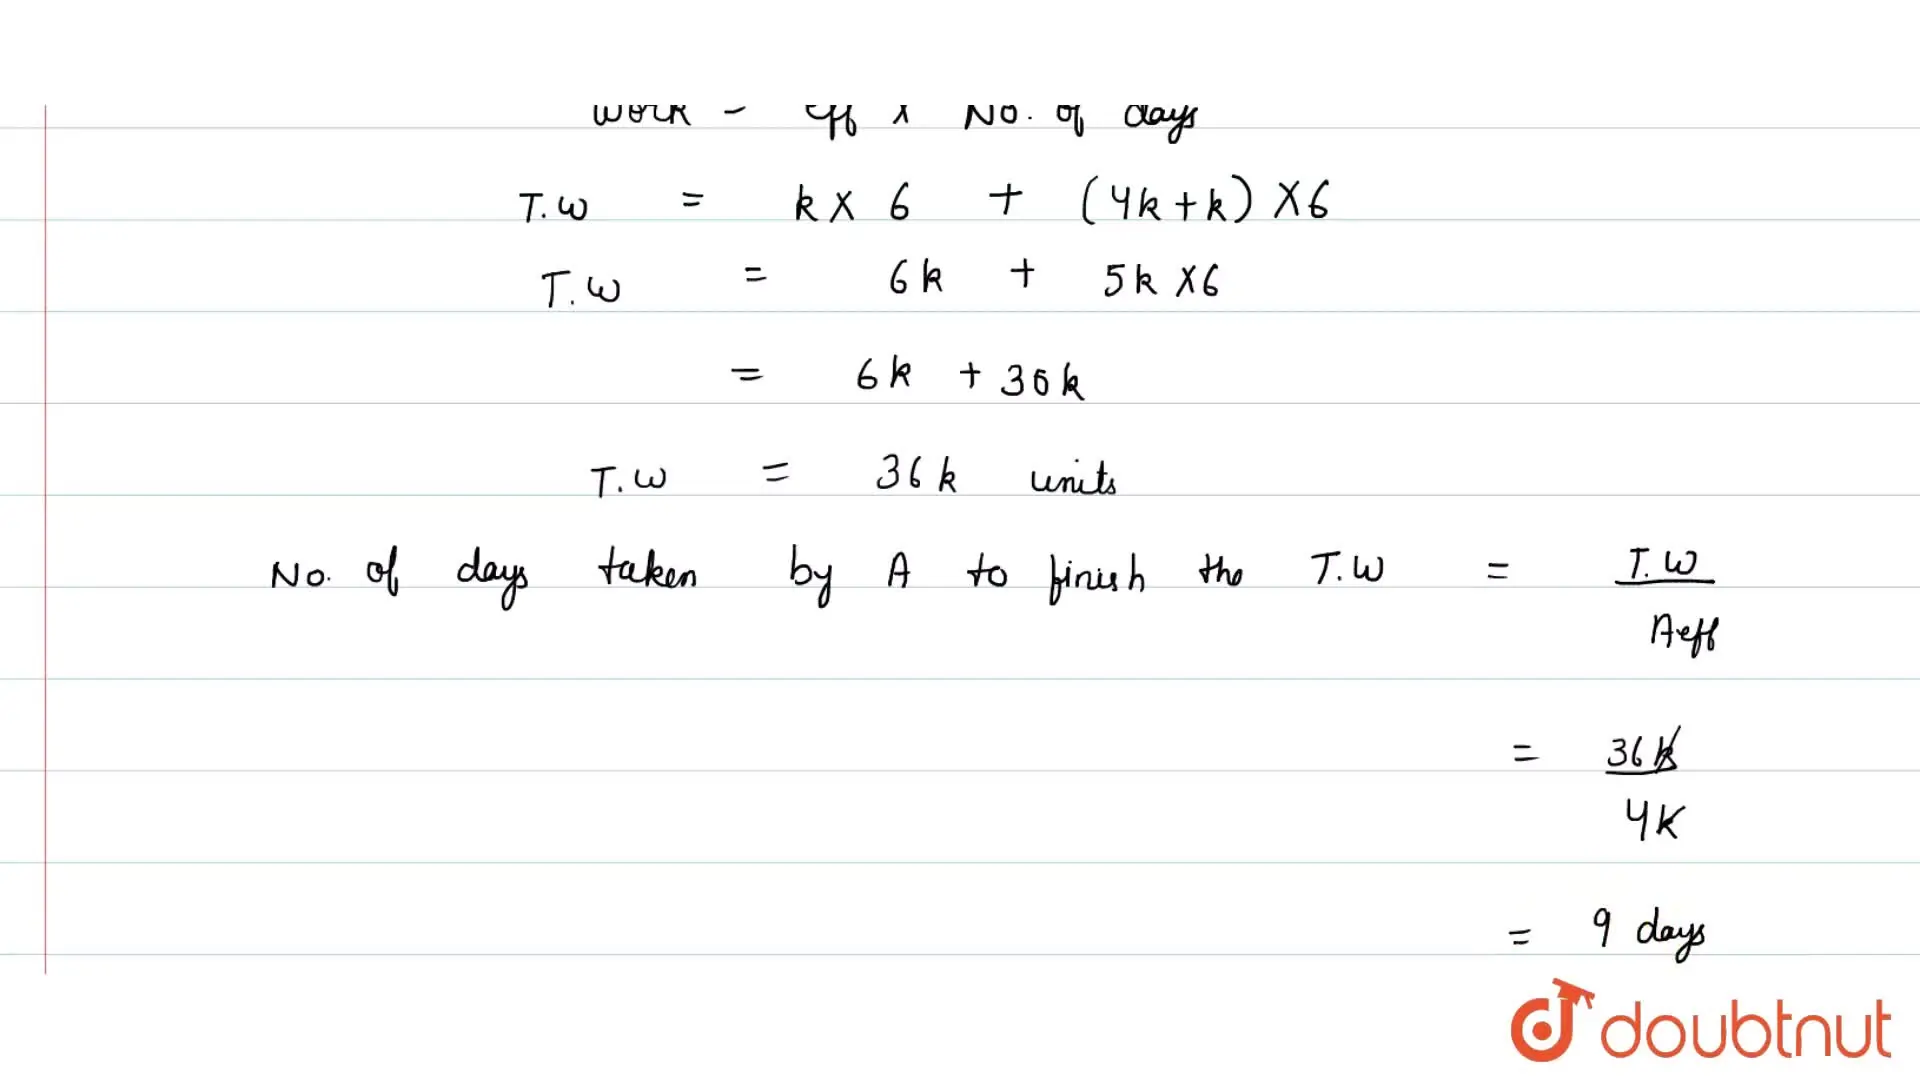 Work = eff x No. of days
T.W = k X 6 + (4k + k) X 6
T.W = 6k + 5k X 6
= 6k + 30k
T.W = 36k units
No. of days taken by A to finish the T.W = T.W / Aeff
= 36k / 4k
= 9 days
doubtnut